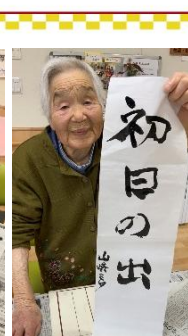 初日の出